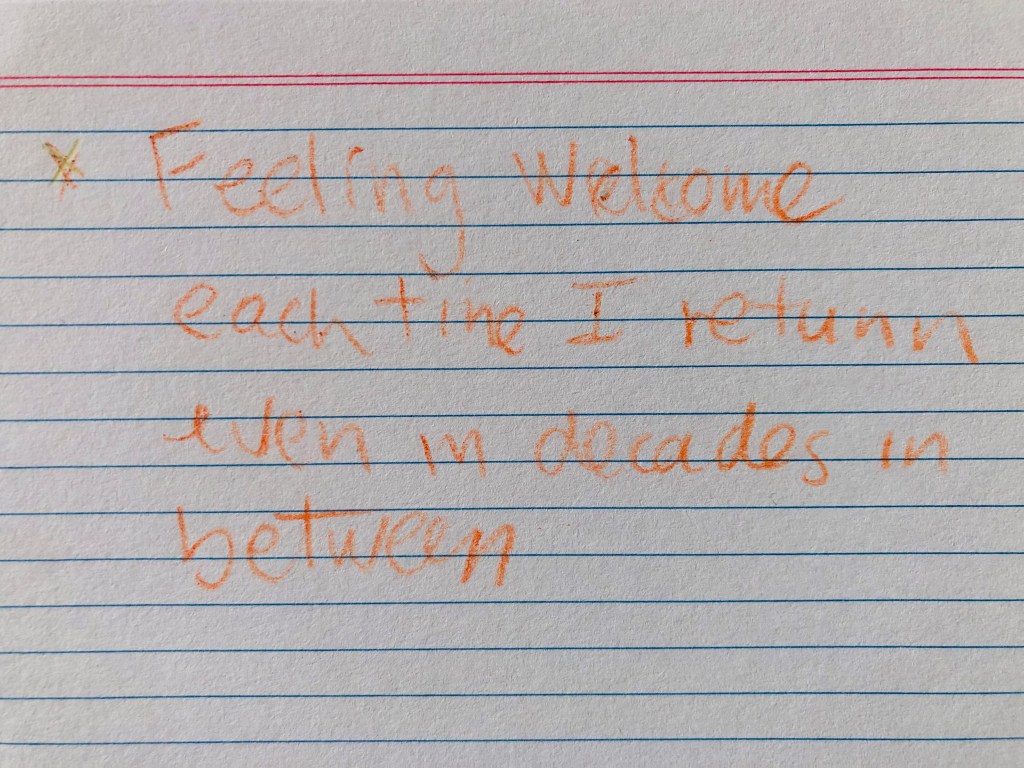 * Feeling Welcome
each time I return
even in decades in
between